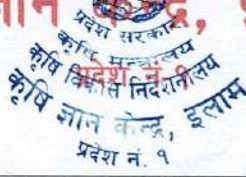 ज्ञान केन्द्र,
प्रदेश सरकार
कृषि मन्त्रालय
कृषि विकास निर्देशनालय
प्रदेश नं. १
कृषि ज्ञान केन्द्र, इलाम
प्रदेश नं. १